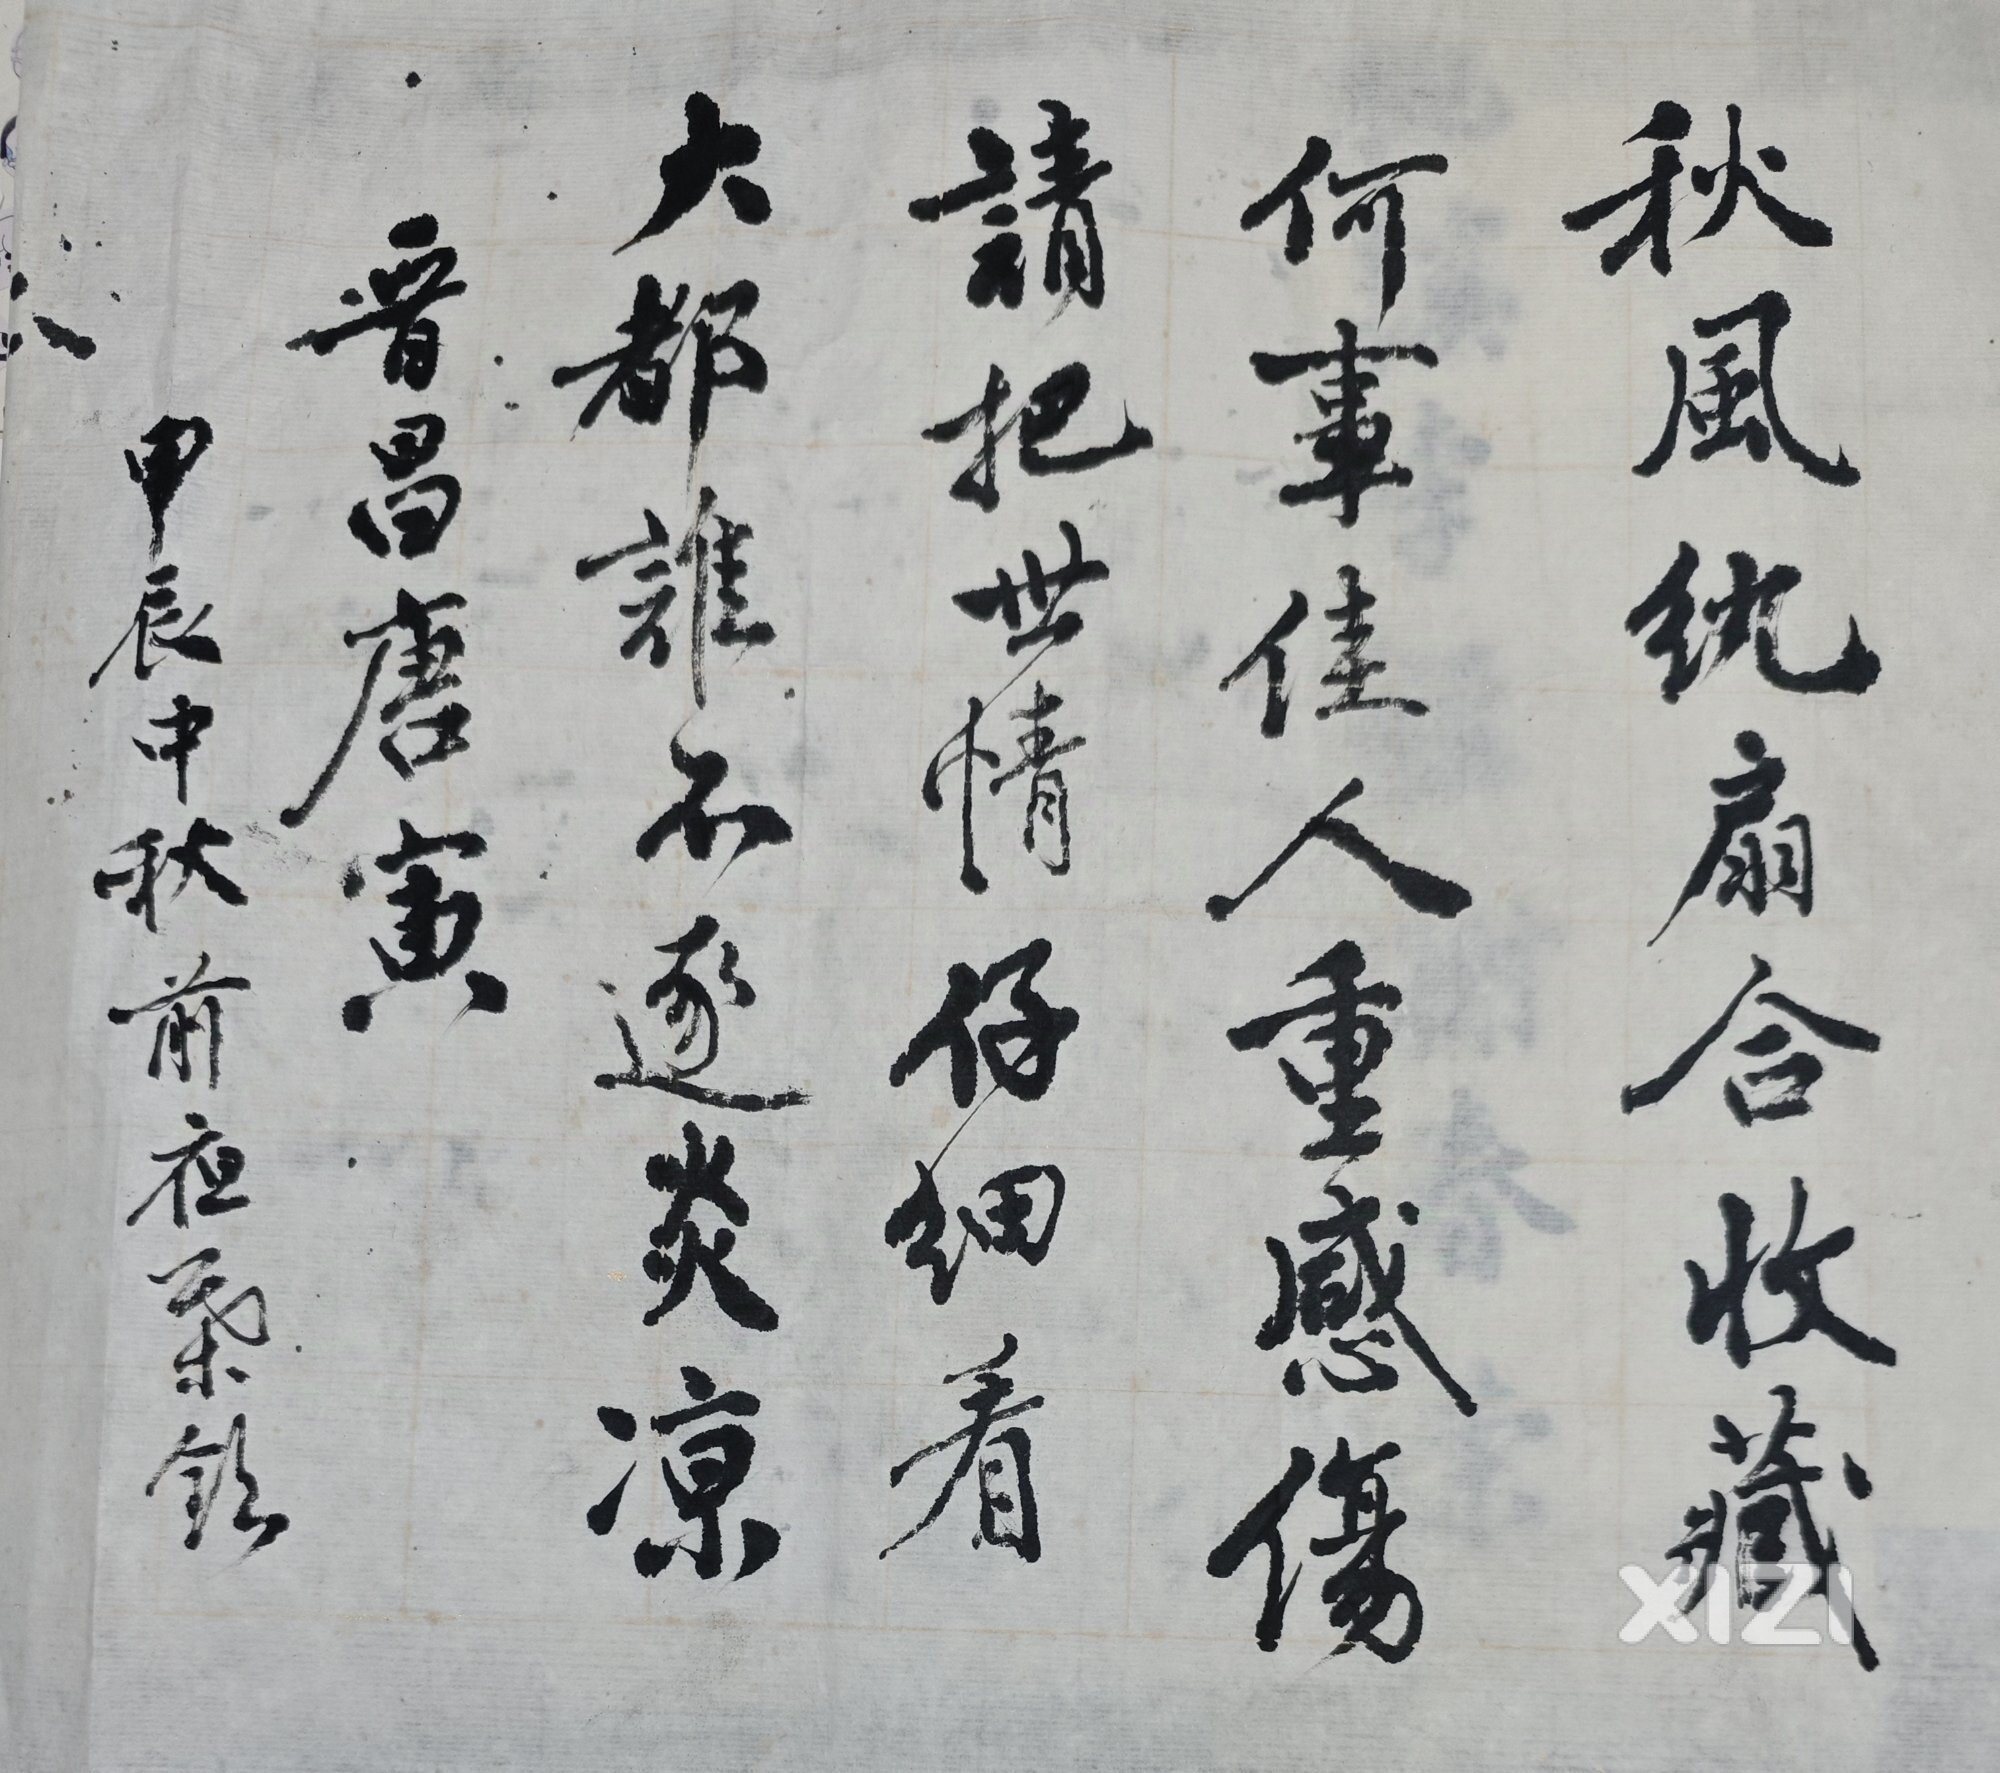 秋風紈扇合收藏
何事佳人重感傷
請把世情仔細看
大都誰不逐炎凉
晋昌唐寅
甲辰中秋前夜
XIZI